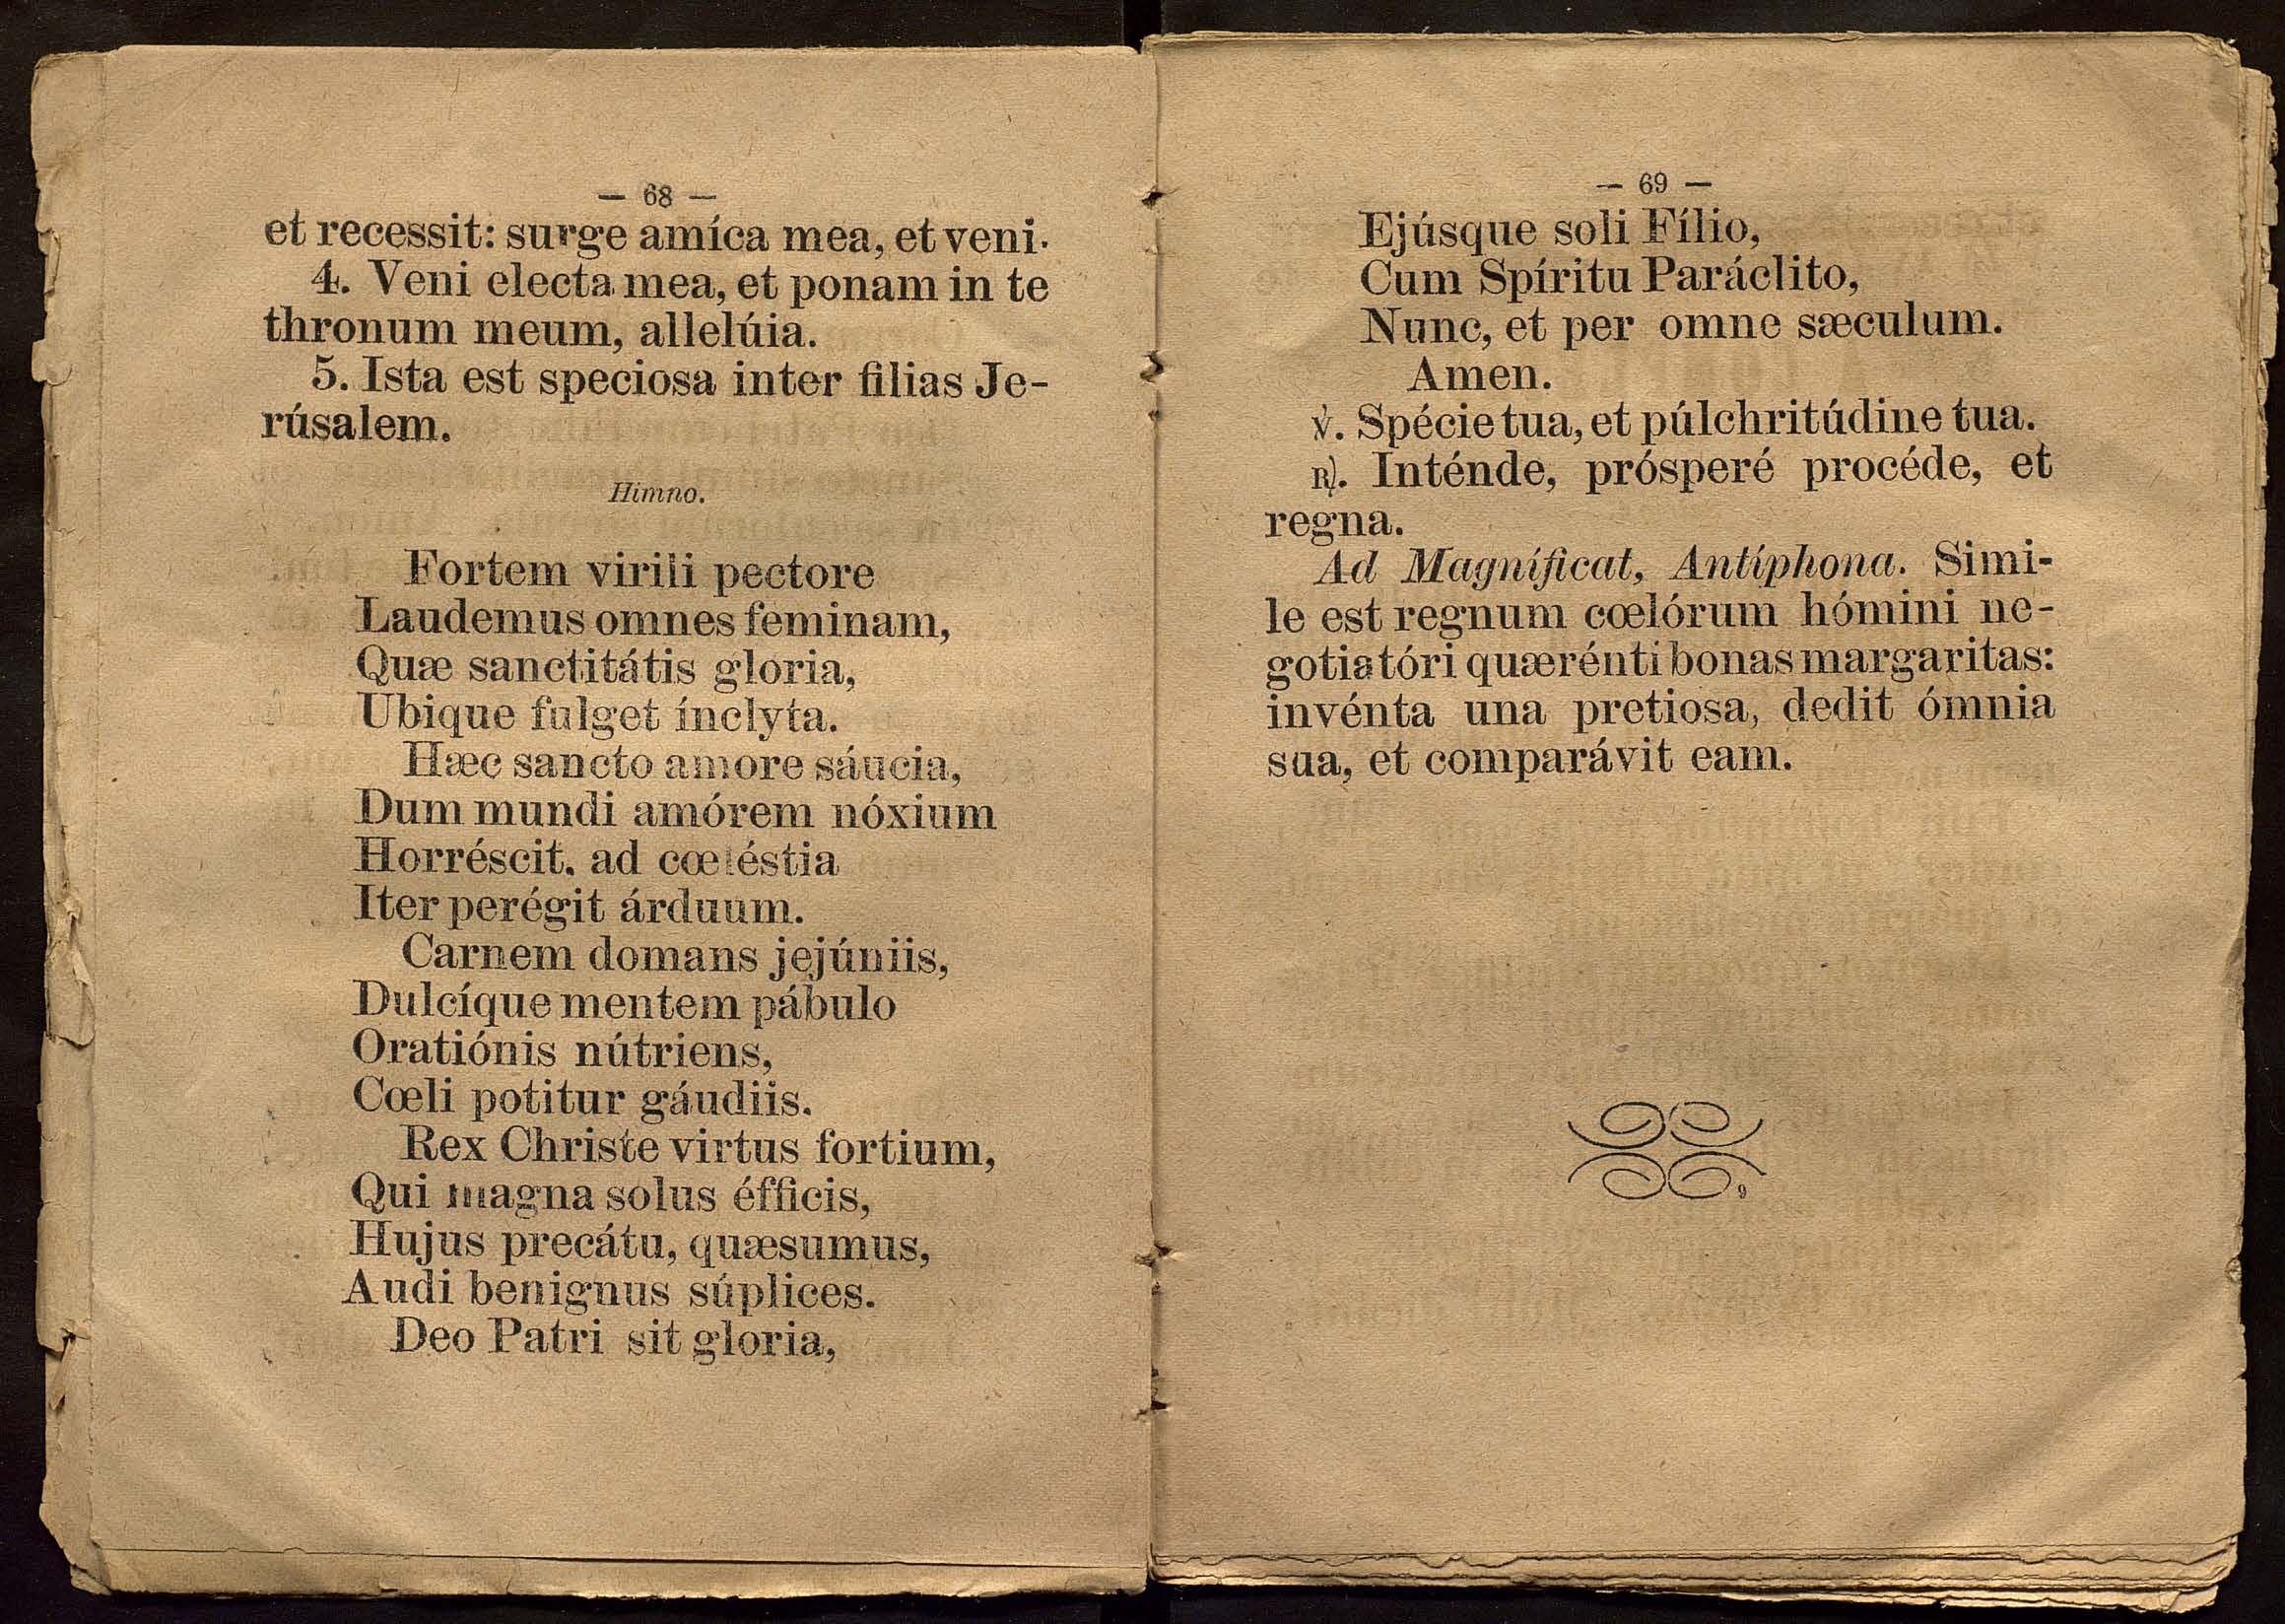 — 68 —
et recessit: surge amíca mea, et veni.
4. Veni electa mea, et ponam in te
thronum meum, allelúia.
5. Ista est speciosa inter filias Je-
rúsalem.
Himno.
Fortem virili pectore
Laudemus omnes feminam,
Quæ sanctitátis gloria,
Ubique fulget ínclyta.
Hæc sancto amore sáucia,
Dum mundi amórem nóxium
Horréscit, ad cœléstia
Iter perégit árduum.
Carnem domans jejúniis,
Dulcíque mentem pábulo
Oratiónis nútriens,
Cœli potitur gáudiis.
Rex Christe virtus fortium,
Qui magna solus éfficis,
Hujus precátu, quæsumus,
Audi benignus súplices.
Deo Patri sit gloria,
— 69 —
Ejúsque soli Fílio,
Cum Spíritu Paráclito,
Nunc, et per omne sæculum.
Amen.
℣. Spécie tua, et púlchritúdine tua.
℟. Inténde, prósperé procéde, et
regna.
Ad Magníficat, Antíphona. Simi-
le est regnum cœlórum hómini ne-
gotiatóri quærénti bonas margaritas:
invénta una pretiosa, dedit ómnia
sua, et comparávit eam.
9